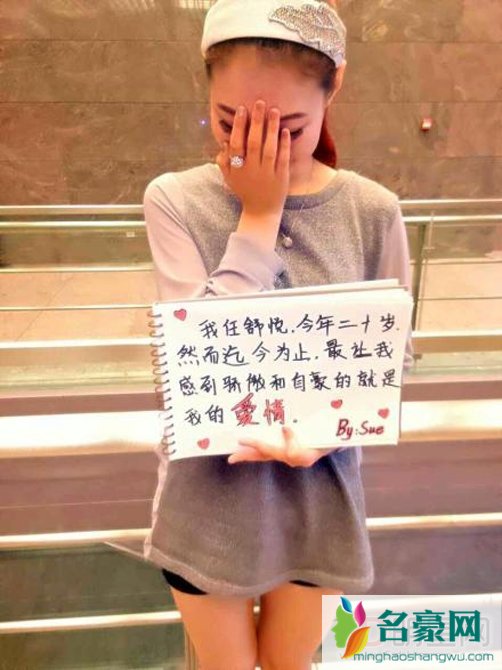 我任舒悦.今年二十岁.
然而迄今为止.最让我
感到骄傲和自豪的就是
我的爱情.
By:Sue
名豪网
minghaoshangwu.com